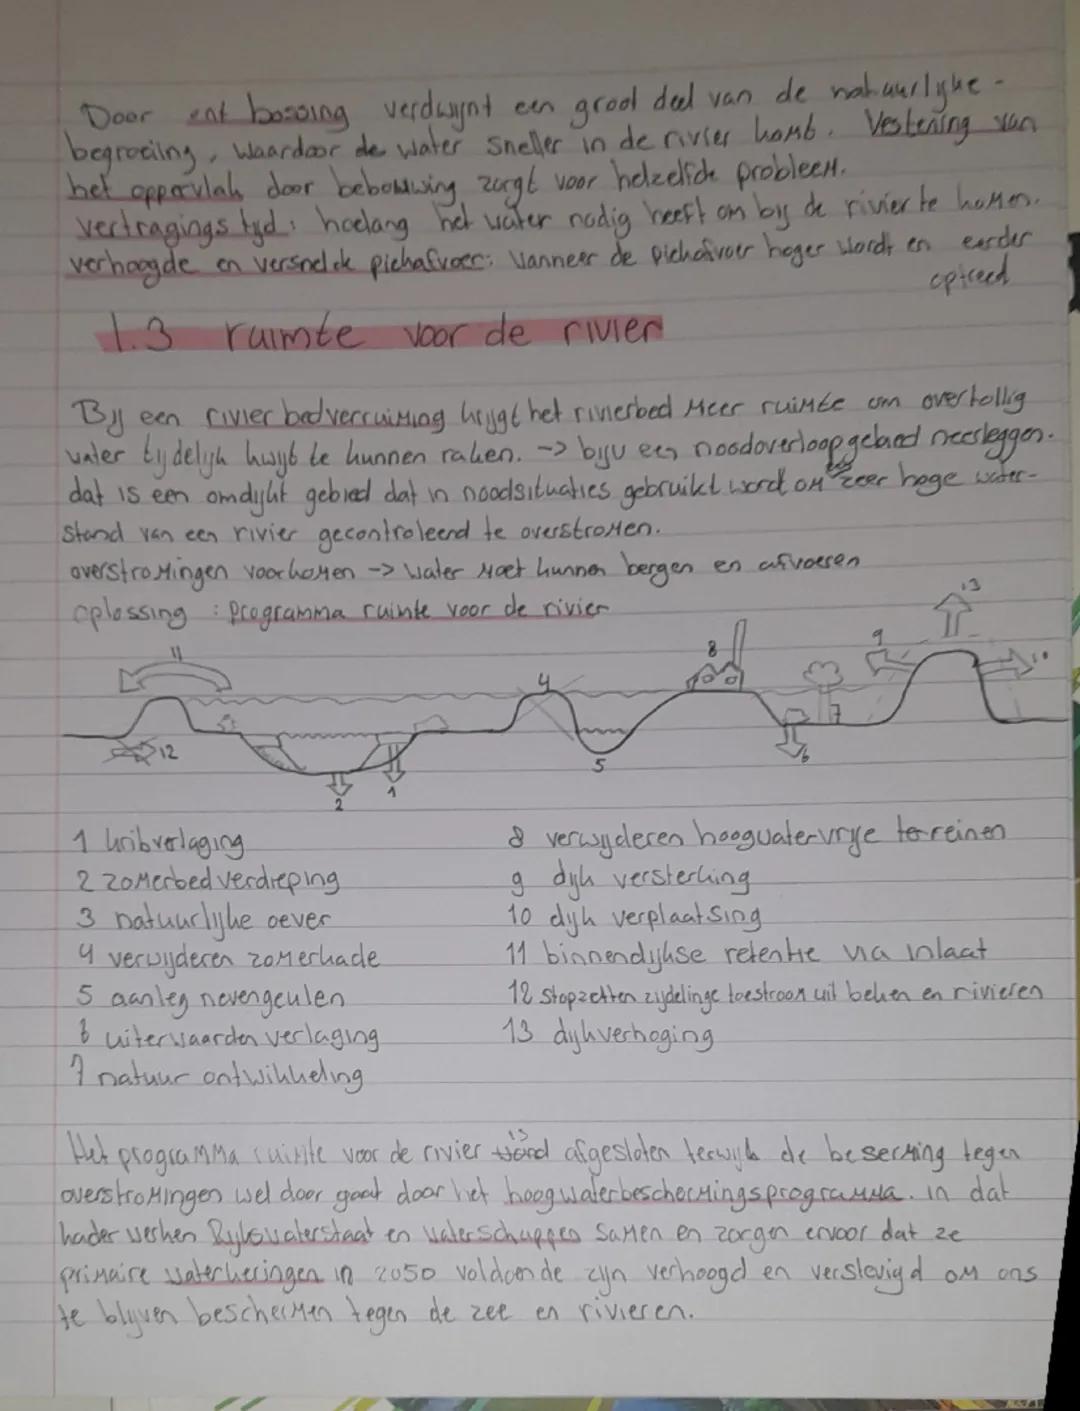 Door ent bossing verdwijnt een groot deel van de natuurlijke-
begroeiing, waardoor de water sneller in de rivier komt. Vestening van
het oppervlak door bebouwing zorgt voor hetzelfde probleem.
vertragings tijd: hoelang het water nodig heeft om bij de rivier te komen.
verhoogde en versnelde piekafvoer: wanneer de piekafvoer hoger wordt en eerder
optreed
1.3 ruimte voor de rivier
Bij een rivierbedverruiming krijgt het rivierbed meer ruimte om overtollig
water tijdelijk kwijt te kunnen raken. -> bijv een noodoverloopgebied neerleggen.
dat is een omdijkt gebied dat in noodsituaties gebruikt word om bij zeer hoge water-
stand van een rivier gecontroleerd te overstromen.
overstromingen voorkomen -> water moet kunnen bergen en afvoeren
oplossing : programma ruimte voor de rivier
13
11 8 9 10
4
3 7
12 5 6
2 1
1 kribverlaging
2 zomerbedverdieping
3 natuurlijke oever
4 verwijderen zomerkade
5 aanleg nevengeulen
6 uiterwaarden verlaging
7 natuur ontwikkeling
8 verwijderen hoogwatervrije terreinen
9 dijk versterking
10 dijk verplaatsing
11 binnendijkse retentie via inlaat
12 stopzetten zijdelinge toestroom uit beken en rivieren
13 dijkverhoging
Het programma ruimte voor de rivier is afgesloten terwijl de beserming tegen
overstromingen wel door gaat door het hoogwaterbeschermingsprogramma. in dat
kader werken Rijkswaterstaat en waterschappen samen en zorgen ervoor dat ze
primaire waterkeringen in 2050 voldoende zijn verhoogd en verstevigd om ons
te blijven beschermen tegen de zee en rivieren.